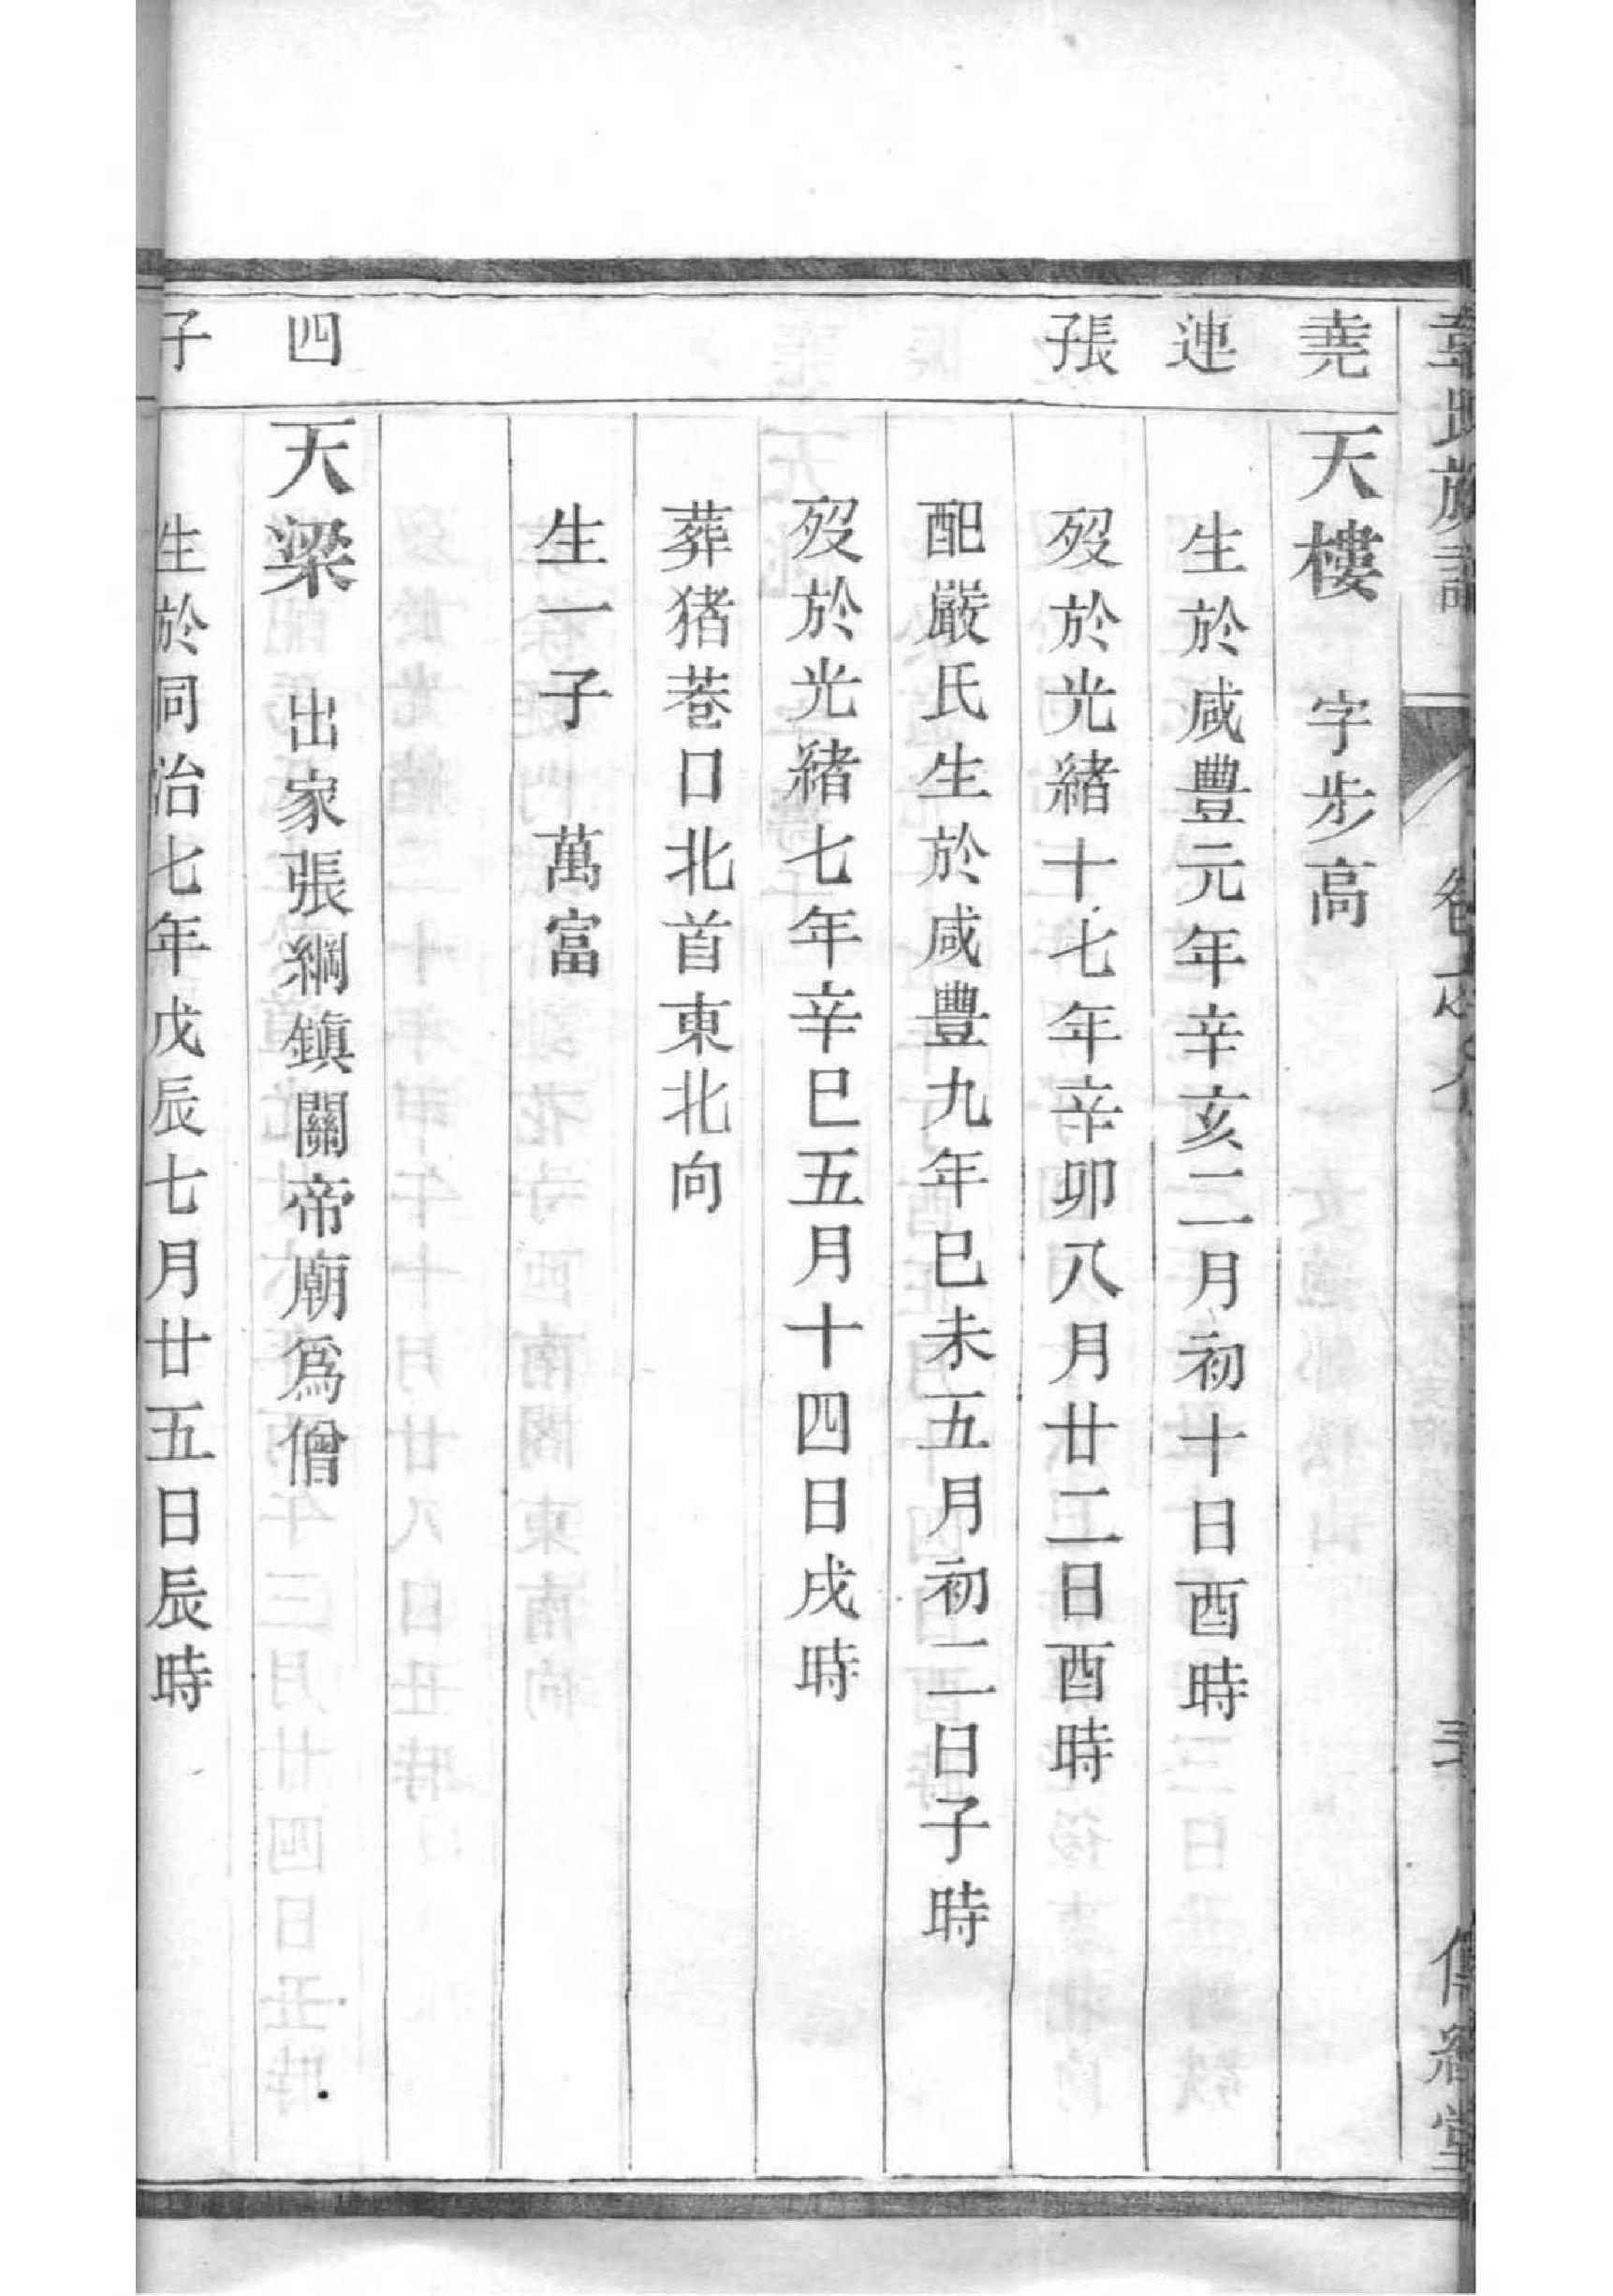 堯 天樓 字步高
連 生於咸豐元年辛亥二月初十日酉時
張 歿於光緒十七年辛卯八月廿二日酉時
配嚴氏生於咸豐九年巳未五月初二日子時
歿於光緒七年辛巳五月十四日戌時
葬猪巷口北首東北向
生一子 萬富
四 天梁 出家張綱鎮關帝廟爲僧
子 生於同治七年戊辰七月廿五日辰時